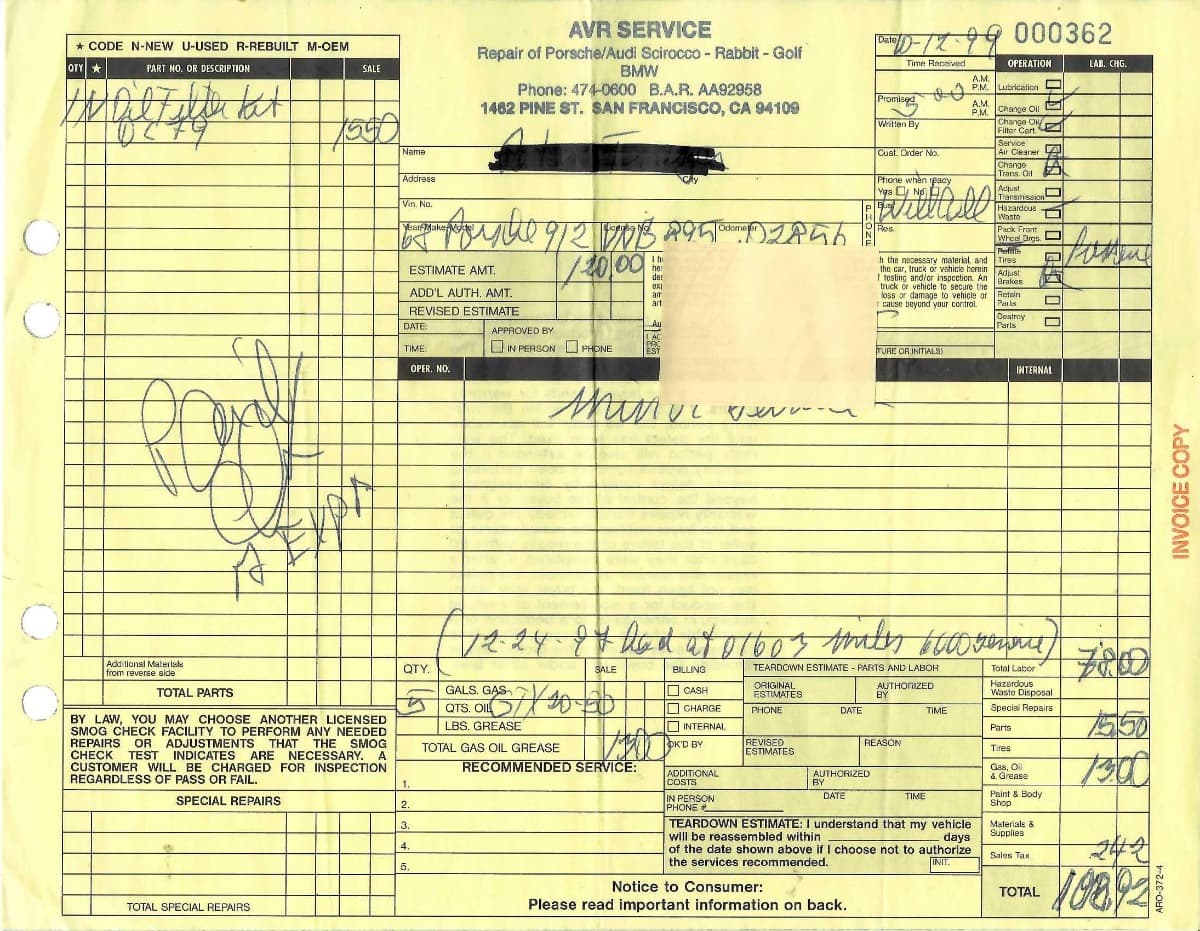 ★ CODE N-NEW U-USED R-REBUILT M-OEM
QTY ★ PART NO. OR DESCRIPTION SALE
1 N Oil Filter Kit
OC 79 15 50
AVR SERVICE
Repair of Porsche/Audi Scirocco - Rabbit - Golf
BMW
Phone: 474-0600 B.A.R. AA92958
1462 PINE ST. SAN FRANCISCO, CA 94109
Date 10-12-99 000362
Time Received A.M. P.M.
Promised 5 00 A.M. P.M.
Written By
Cust. Order No.
Phone when ready
Yes No
Bus. Will Call
PHONE
Res.
Name
Address City
Vin. No.
Year-Make-Model License No. Odometer
68 Porsche 912 VVB 895 02856
ESTIMATE AMT. 120.00
ADD'L AUTH. AMT.
REVISED ESTIMATE
DATE: APPROVED BY
TIME: IN PERSON PHONE
h the necessary material, and
the car, truck or vehicle herein
testing and/or inspection. An
truck or vehicle to secure the
loss or damage to vehicle or
cause beyond your control.
TURE OR INITIALS)
OPERATION LAB. CHG.
Lubrication
Change Oil
Change Oil Filter Cart.
Service Air Cleaner
Change Trans. Oil
Adjust Transmission
Hazardous Waste
Pack Front Wheel Brgs.
Rotate Tires
Adjust Brakes
Retain Parts
Destroy Parts
OPER. NO. INTERNAL
Minor
INVOICE COPY
(12-24-97 had at 01603 miles 6000 service)
Additional Materials
from reverse side
TOTAL PARTS
BY LAW, YOU MAY CHOOSE ANOTHER LICENSED
SMOG CHECK FACILITY TO PERFORM ANY NEEDED
REPAIRS OR ADJUSTMENTS THAT THE SMOG
CHECK TEST INDICATES ARE NECESSARY. A
CUSTOMER WILL BE CHARGED FOR INSPECTION
REGARDLESS OF PASS OR FAIL.
SPECIAL REPAIRS
TOTAL SPECIAL REPAIRS
QTY. SALE
GALS. GAS
5 QTS. OIL GTX 20-50
LBS. GREASE
TOTAL GAS OIL GREASE 13 00
RECOMMENDED SERVICE:
1.
2.
3.
4.
5.
BILLING
CASH
CHARGE
INTERNAL
OK'D BY
TEARDOWN ESTIMATE - PARTS AND LABOR
ORIGINAL ESTIMATES AUTHORIZED BY
PHONE DATE TIME
REVISED ESTIMATES REASON
ADDITIONAL COSTS AUTHORIZED BY
IN PERSON DATE TIME
PHONE #
TEARDOWN ESTIMATE: I understand that my vehicle
will be reassembled within days
of the date shown above if I choose not to authorize
the services recommended. INIT.
Total Labor 78.00
Hazardous Waste Disposal
Special Repairs
Parts 15 50
Tires
Gas, Oil & Grease 13.00
Paint & Body Shop
Materials & Supplies
Sales Tax 2 42
TOTAL 108.92
Notice to Consumer:
Please read important information on back.
ARO-372-4